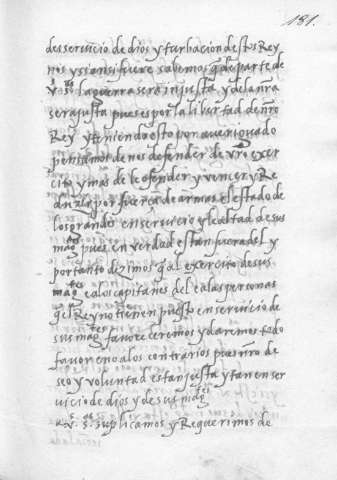 181.
desservicio de dios y turbacion destos Rey
nos y si ansi fuere sabemos q̃ de parte de
v. s. la guerra sera injusta y de la nr̃a
sera justa pues es por la libertad de nr̃o
Rey y teniendo esto por averiguado
pensamos de nos defender de vr̃o exer
cito y mas de le ofender y vencer y Re
duzir por fuerça de armas el estado de
los grandes en servicio y lealtad de sus
mag. pues en verdad estan fuera del y
por tanto dizimos q̃ al exercito de sus
mag.tes e a los capitanes del e a las personas
q̃ el Reyno tienen puesto en servicio de
sus mag.tes favoreceremos y daremos todo
favor e no a los contrarios pues nr̃o de
seo y voluntad es tan justa y tan en ser
uicio de dios y de sus mag.tes
a v. s. suplicamos y Requerimos de